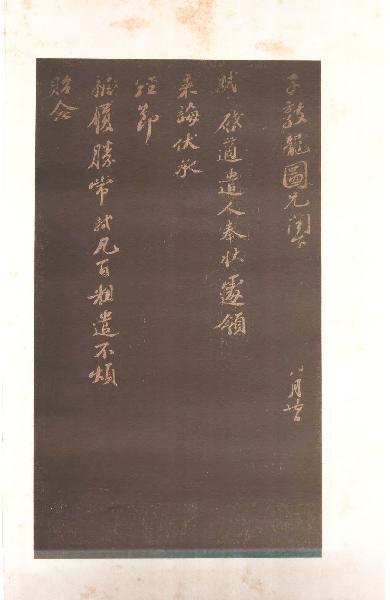 子敦龍圖兄閣下 八月廿日
軾啟適遣人奉狀遽領
來誨伏承
經節
體履勝常軾凡百粗遣不煩
貽念